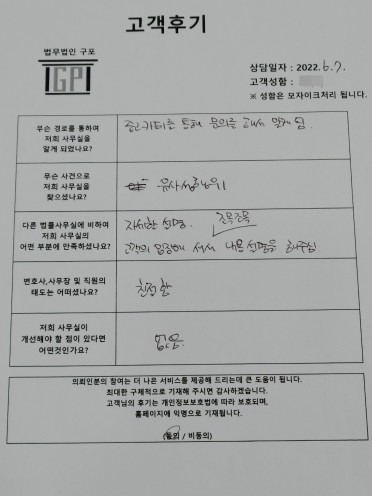 고객후기
법무법인 구포
GP
상담일자 : 2022. 6. 7.
고객성함 :
※ 성함은 모자이크처리 됩니다.
무슨 경로를 통하여
저희 사무실을
알게 되었나요?
통해 문의를 해서 알게 됨.
무슨 사건으로
저희 사무실을
찾으셨나요?
유사성행위
다른 법률사무소에 비하여
저희 사무실의
어떤 부분에 만족하셨나요?
자세한 설명. 조목조목
고객의 입장에 서서 내용 설명을 해주심
변호사,사무장 및 직원의
태도는 어떠셨나요?
친절함
저희 사무실이
개선해야 할 점이 있다면
어떤것인가요?
없음.
의뢰인분의 참여는 더 나은 서비스를 제공해 드리는데 큰 도움이 됩니다.
최대한 구체적으로 기재해 주시면 감사하겠습니다.
고객님의 후기는 개인정보보호법에 따라 보호되며,
홈페이지에 익명으로 기재됩니다.
(동의 / 비동의)